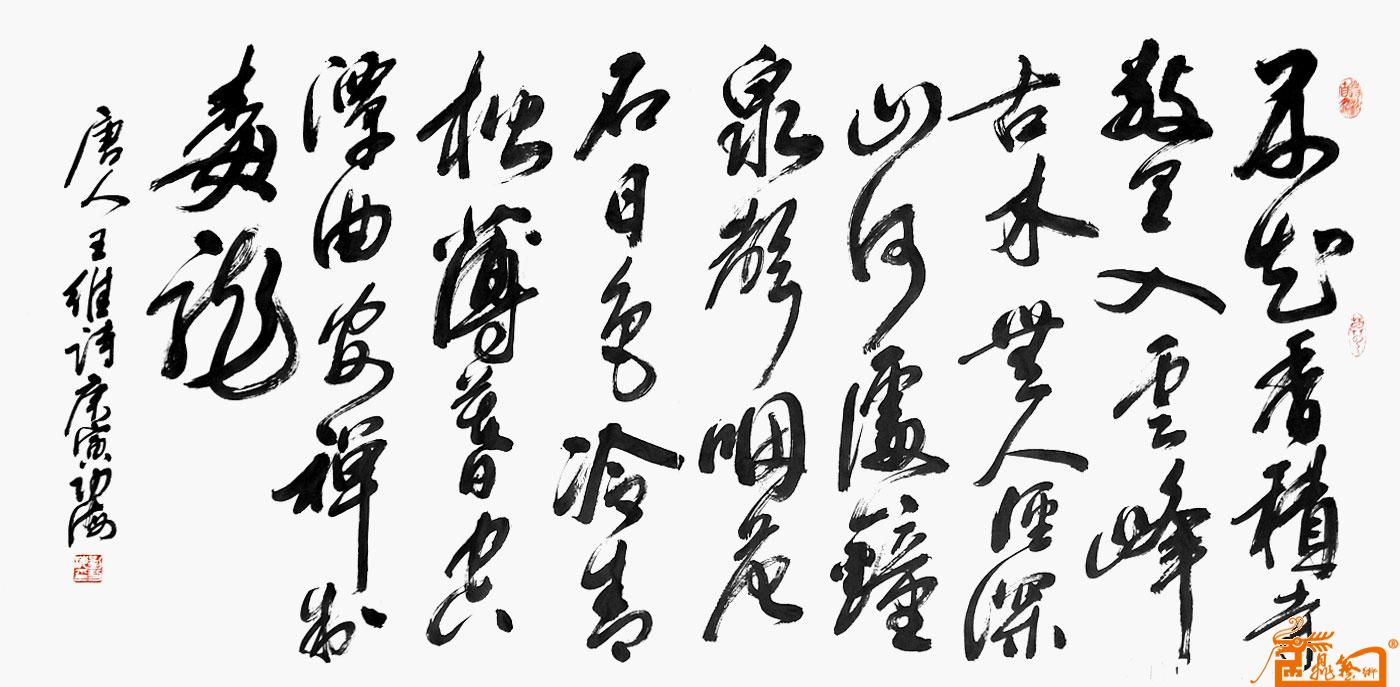 不知香積寺
數里入雲峰
古木無人徑深
山何處鐘
泉聲咽危
石日色冷青
松薄暮空
潭曲安禪制
毒龍
唐人王維詩庚寅